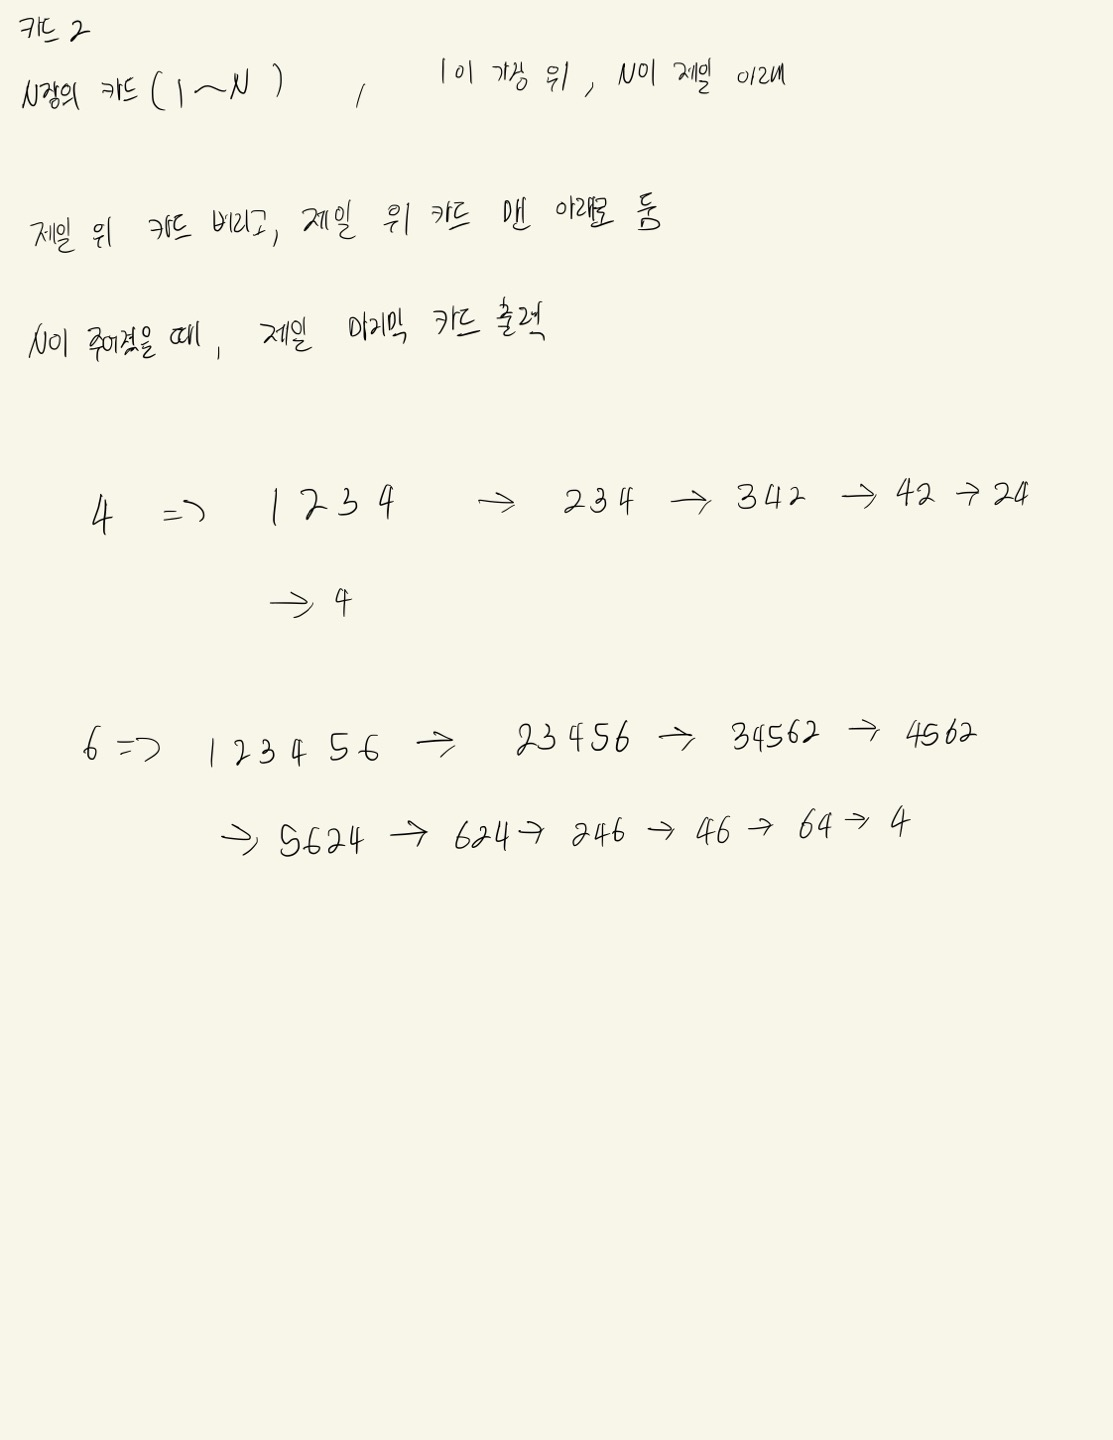 카드 2
N장의 카드 (1~N) , 1이 가장 위, N이 제일 아래
제일 위 카드 버리고, 제일 위 카드 맨 아래로 둠
N이 주어졌을 때, 제일 마지막 카드 출력
4 => 1 2 3 4 → 2 3 4 → 3 4 2 → 42 → 24
→ 4
6 => 1 2 3 4 5 6 → 23456 → 34562 → 4562
→ 5624 → 624 → 246 → 46 → 64 → 4